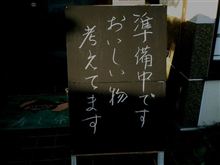 準備中です
おいしい物
考えてます